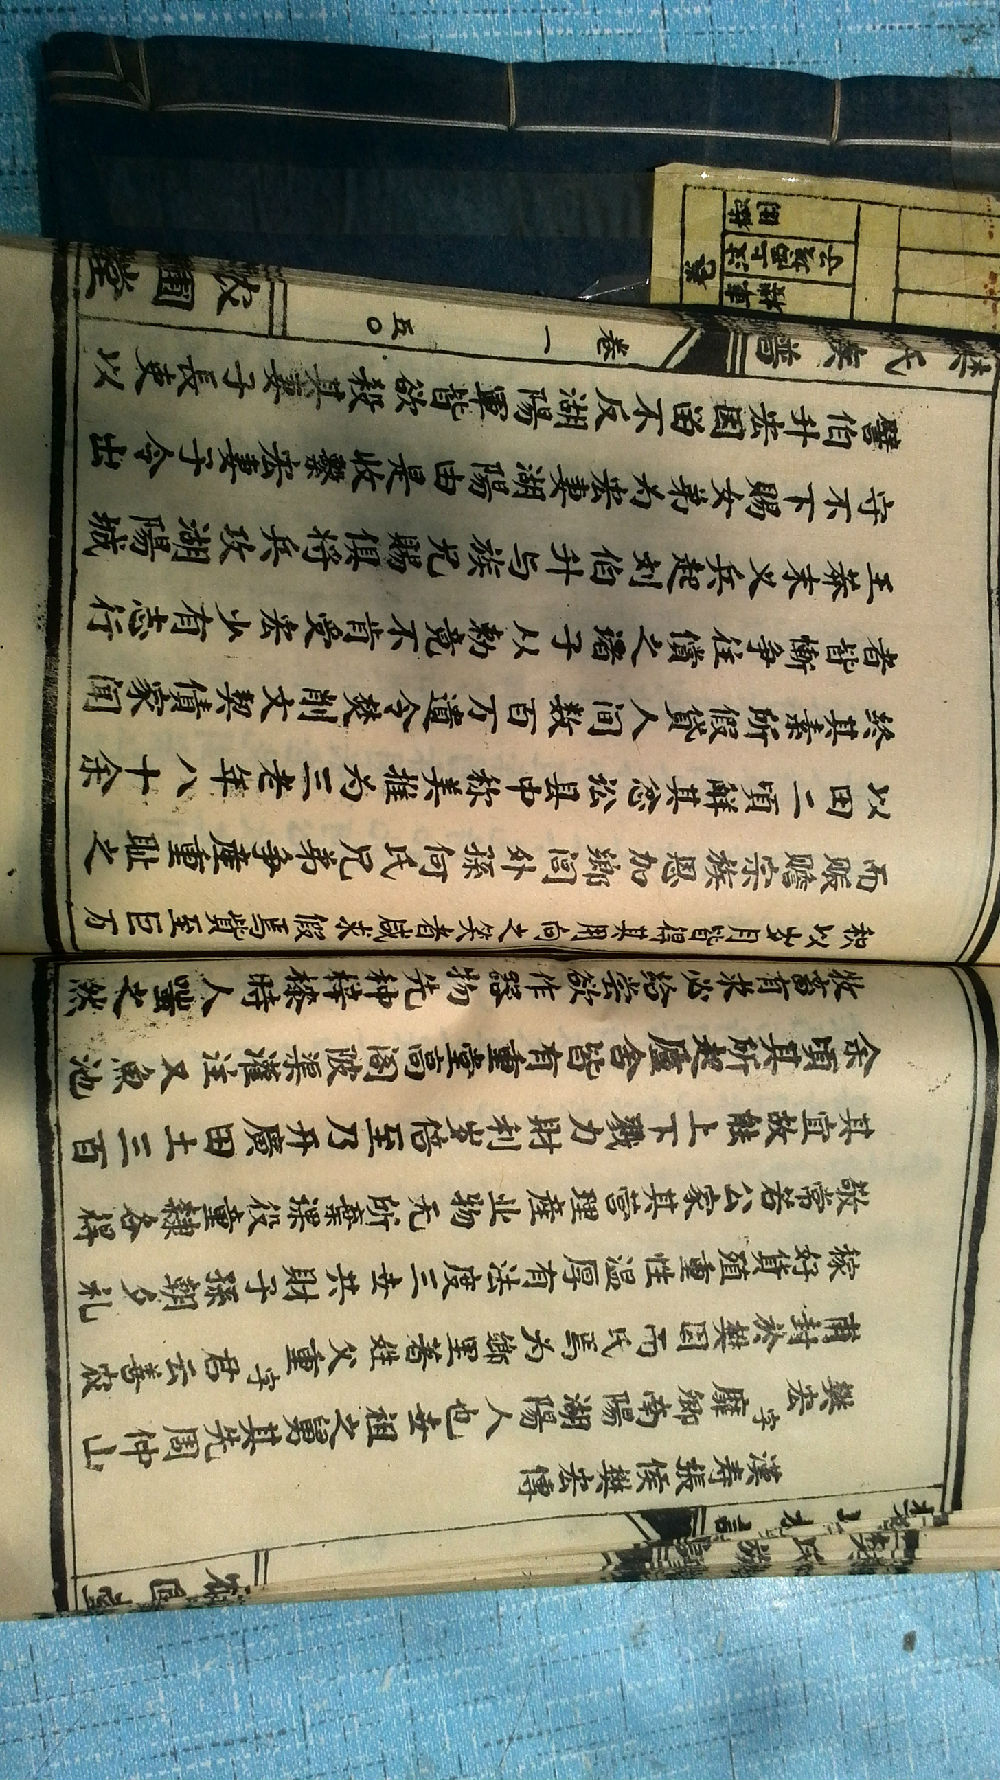 漢寿張侯樊宏傳
樊宏字靡卿南陽湖陽人也世祖之舅其先周仲山
甫封於樊因而氏焉为鄉里著姓父重字君云善农
稼好貨殖重性温厚有法度三世共財子孫朝夕礼
敬常若公家其营理產业物无所棄课役童隸各得
其宜故能上下戮力財利歲倍至乃开廣田土三百
余頃其所起廬舍皆有重堂高阁陂渠灌注又魚池
牧畜有求必給尝欲作器物先种梓漆時人嗤之然
积以岁月皆得其用向之笑者咸求假焉貲至巨万
而赈赡宗族恩加鄉闾外孫何氏兄弟争產重耻之
以田二頃解其忿讼县中称美推为三老年八十余
終其素所假貸人间数百万遺令焚削文契債家闻
者皆慚争往償之诸子以勅竟不肯受宏少有志行
王莽末义兵起刘伯升与族兄賜俱将兵攻湖陽城
守不下賜女弟为宏妻湖陽由是收繫宏妻子令出
譬伯升宏因留不反湖陽軍皆欲殺其妻子長吏以
樊氏族譜
卷一
五〇